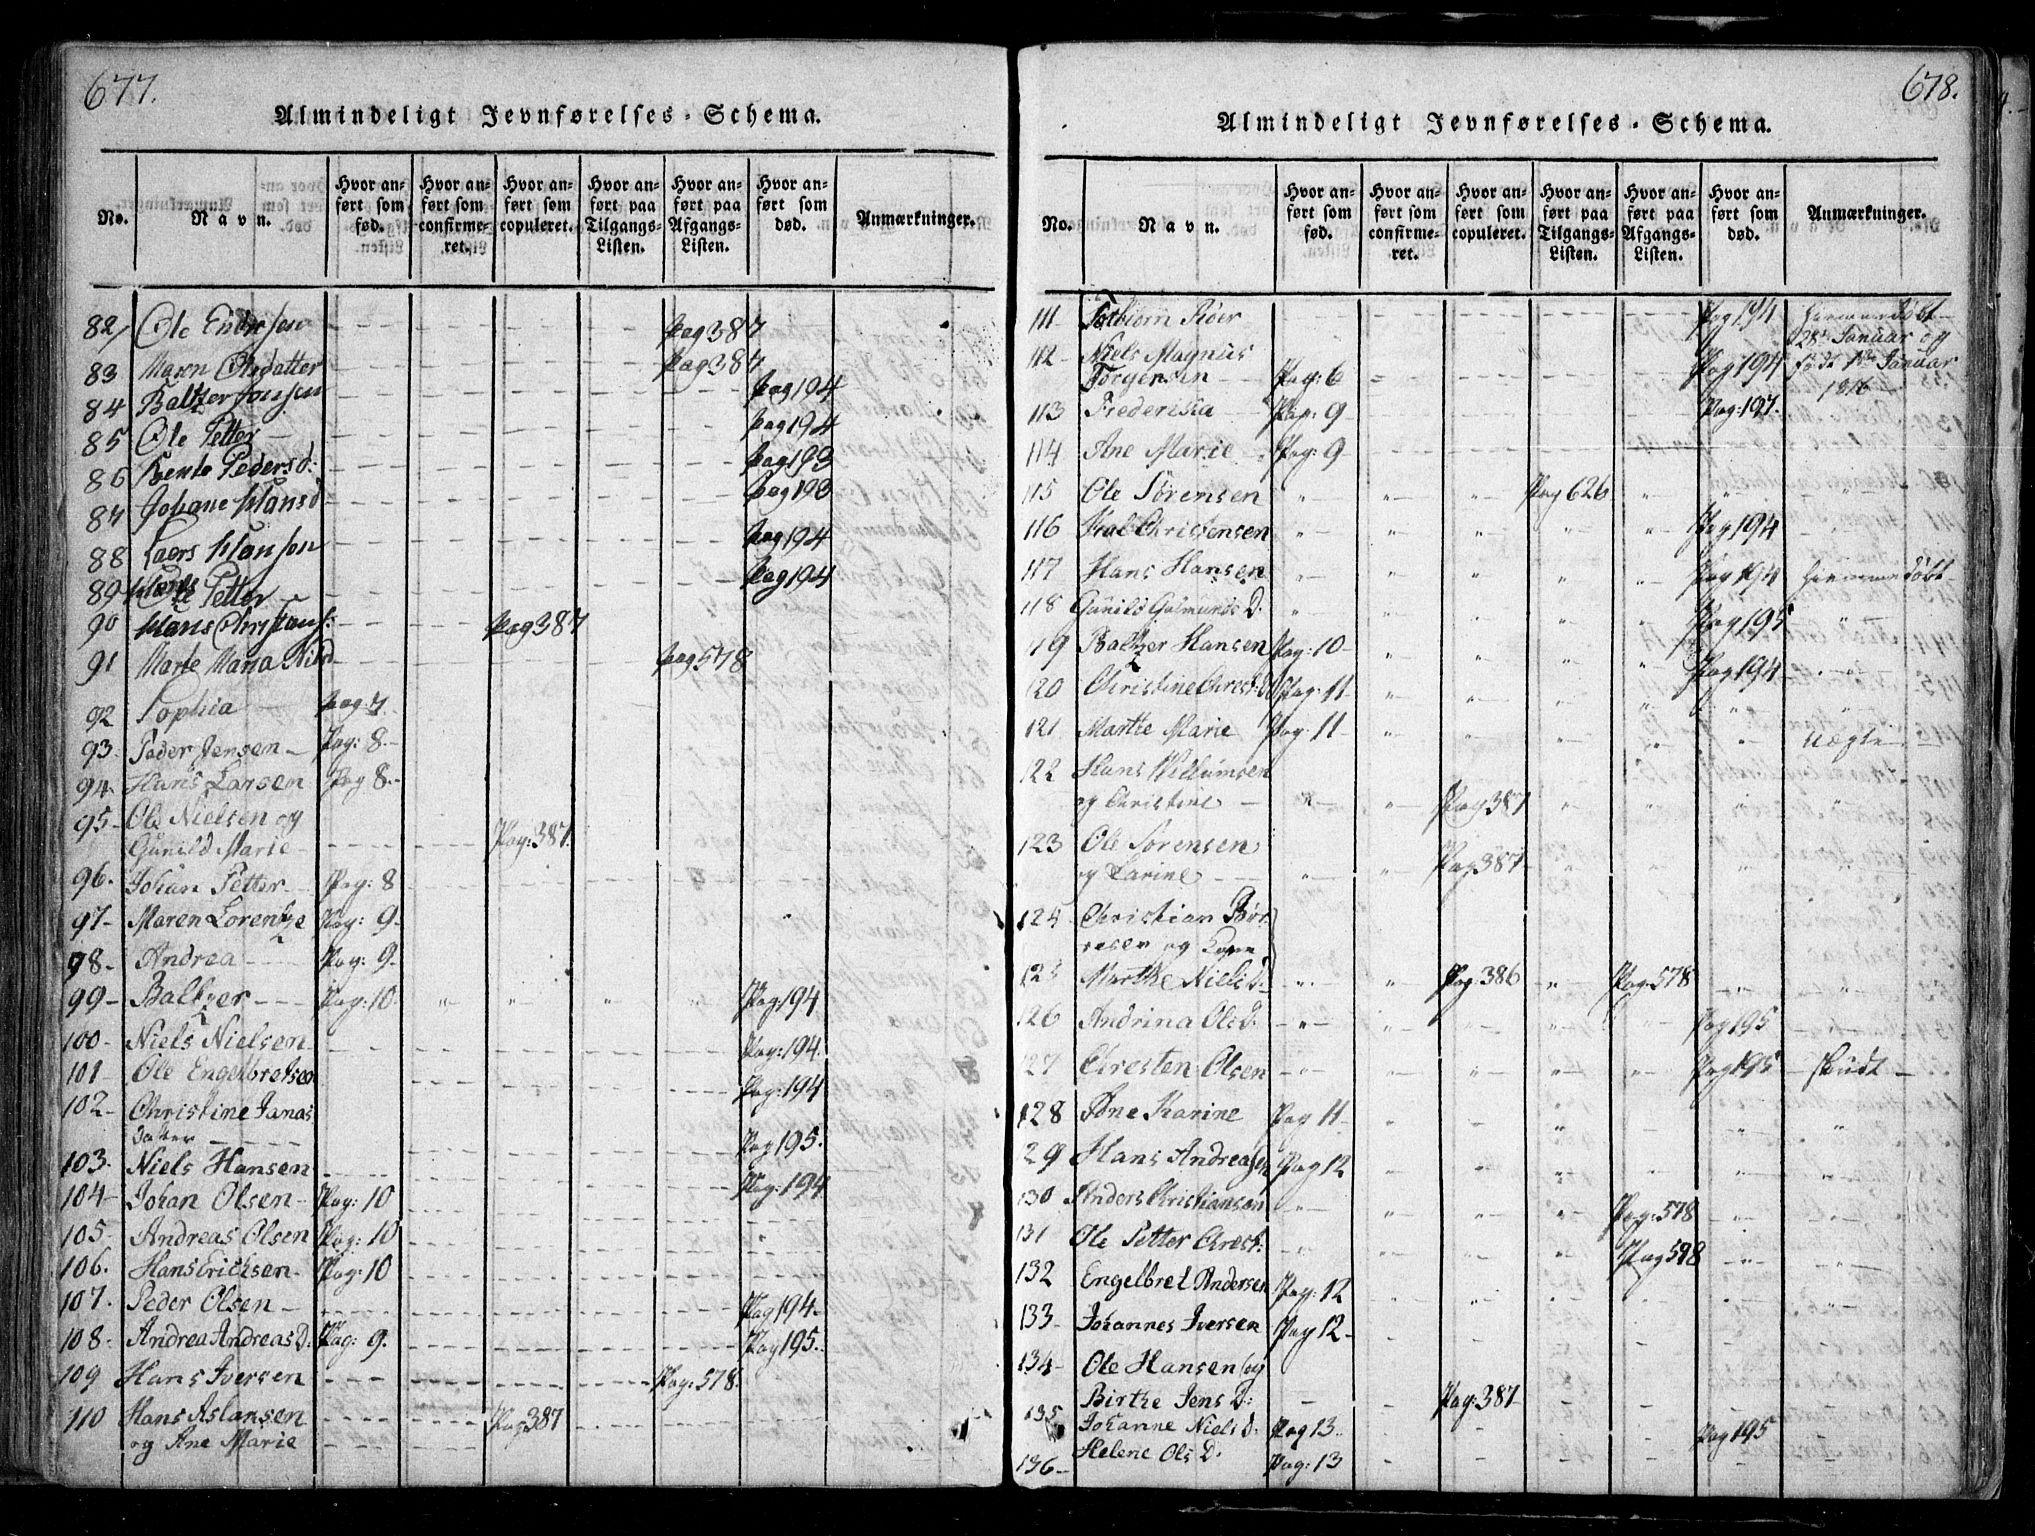 677.
Almindeligt Jevnførelses-Schema.
No. Navn. Hvor anført som fød. Hvor anført som confirmeret. Hvor anført som copuleret. Hvor anført paa Tilgangs-Listen. Hvor anført paa Afgangs-Listen. Hvor anført som død. Anmærkninger.
82 Ole pag 387
83 Maren Olsdatter pag 387
84 Baltzer Jonsen pag 194
85 Ole Petter pag 194
86 Bente Pedersd: pag 193
87 Johane Hansd pag 193
88 Laers Hansen pag 194
89 Ole Petter pag 194
90 Hans Christians: pag 387
91 Marte Maria pag 578
92 Sophia pag 7
93. Peder Jensen Pag: 8.
94. Hans Larsen Pag 8.
95 Ole Nielsen og
Gunild Marie Pag: 387.
96. Johan Petter Pag: 8
97 Maren Lorentze Pag: 9
98 Andrea Pag: 9
99 Baltzer Pag: 10 Pag: 194
100 Niels Nielsen Pag: 194.
101 Ole Engelbretsen Pag: 194
102 Christine Janas
Datter Pag 195.
103. Niels Hansen Pag: 194
104 Johan Olsen Pag: 10
105 Andreas Olsen Pag: 10
106. Hans Ericksen Pag: 10
107. Peder Olsen Pag 194.
108. Andrea Andreas D: Pag: 9. Pag 195.
109 Hans Iversen Pag: 578.
110 Hans Aslansen
og Ane Marie Pag: 387
678.
Almindeligt Jevnførelses-Schema.
No. Navn. Hvor anført som fød. Hvor anført som confirmeret. Hvor anført som copuleret. Hvor anført paa Tilgangs-Listen. Hvor anført paa Afgangs-Listen. Hvor anført som død. Anmærkninger.
111 Pag 194 Hiemmedøbt
28de Januar og
112 Niels Magnus
Jörgensen Pag: 6 Pag 194 født Januar
1816
113 Frederika Pag: 9 Pag: 197.
114 Ane Marie Pag: 9
115 Ole Sörensen Pag 626
116 Christensen Pag 194
117 Hans Hansen Pag 194 Hiemmedöbt
118 Gunild Gulmunds D: Pag 195
119 Baltzer Hansen Pag: 10 Pag 194
120 Christine Christ: D Pag: 11
121 Marthe Marie Pag 11 Uægte
122 Hans Willumsen
og Christine Pag 387
123 Ole Sorensen
og Karine Pag 387
124 Christian Bör
resen og
125 Marthe Niels D. Pag 386 Pag 578
126 Andrina Ols D: Pag 195
127 Chresten Olsen Pag 195
128 Ane Karine Pag 11
29 Hans Andreasen Pag 12
130 Anders Christiansen Pag: 578
131 Ole Petter Chrest: Pag 578
132 Engelbret Andersen Pag: 12
133 Johannes Iversen Pag 12
134 Ole Hansen og
Birthe Jens D: Pag: 387
135 Johanne Niels D: Pag 13 Pag 195
136 Helene Ols D: Pag: 13